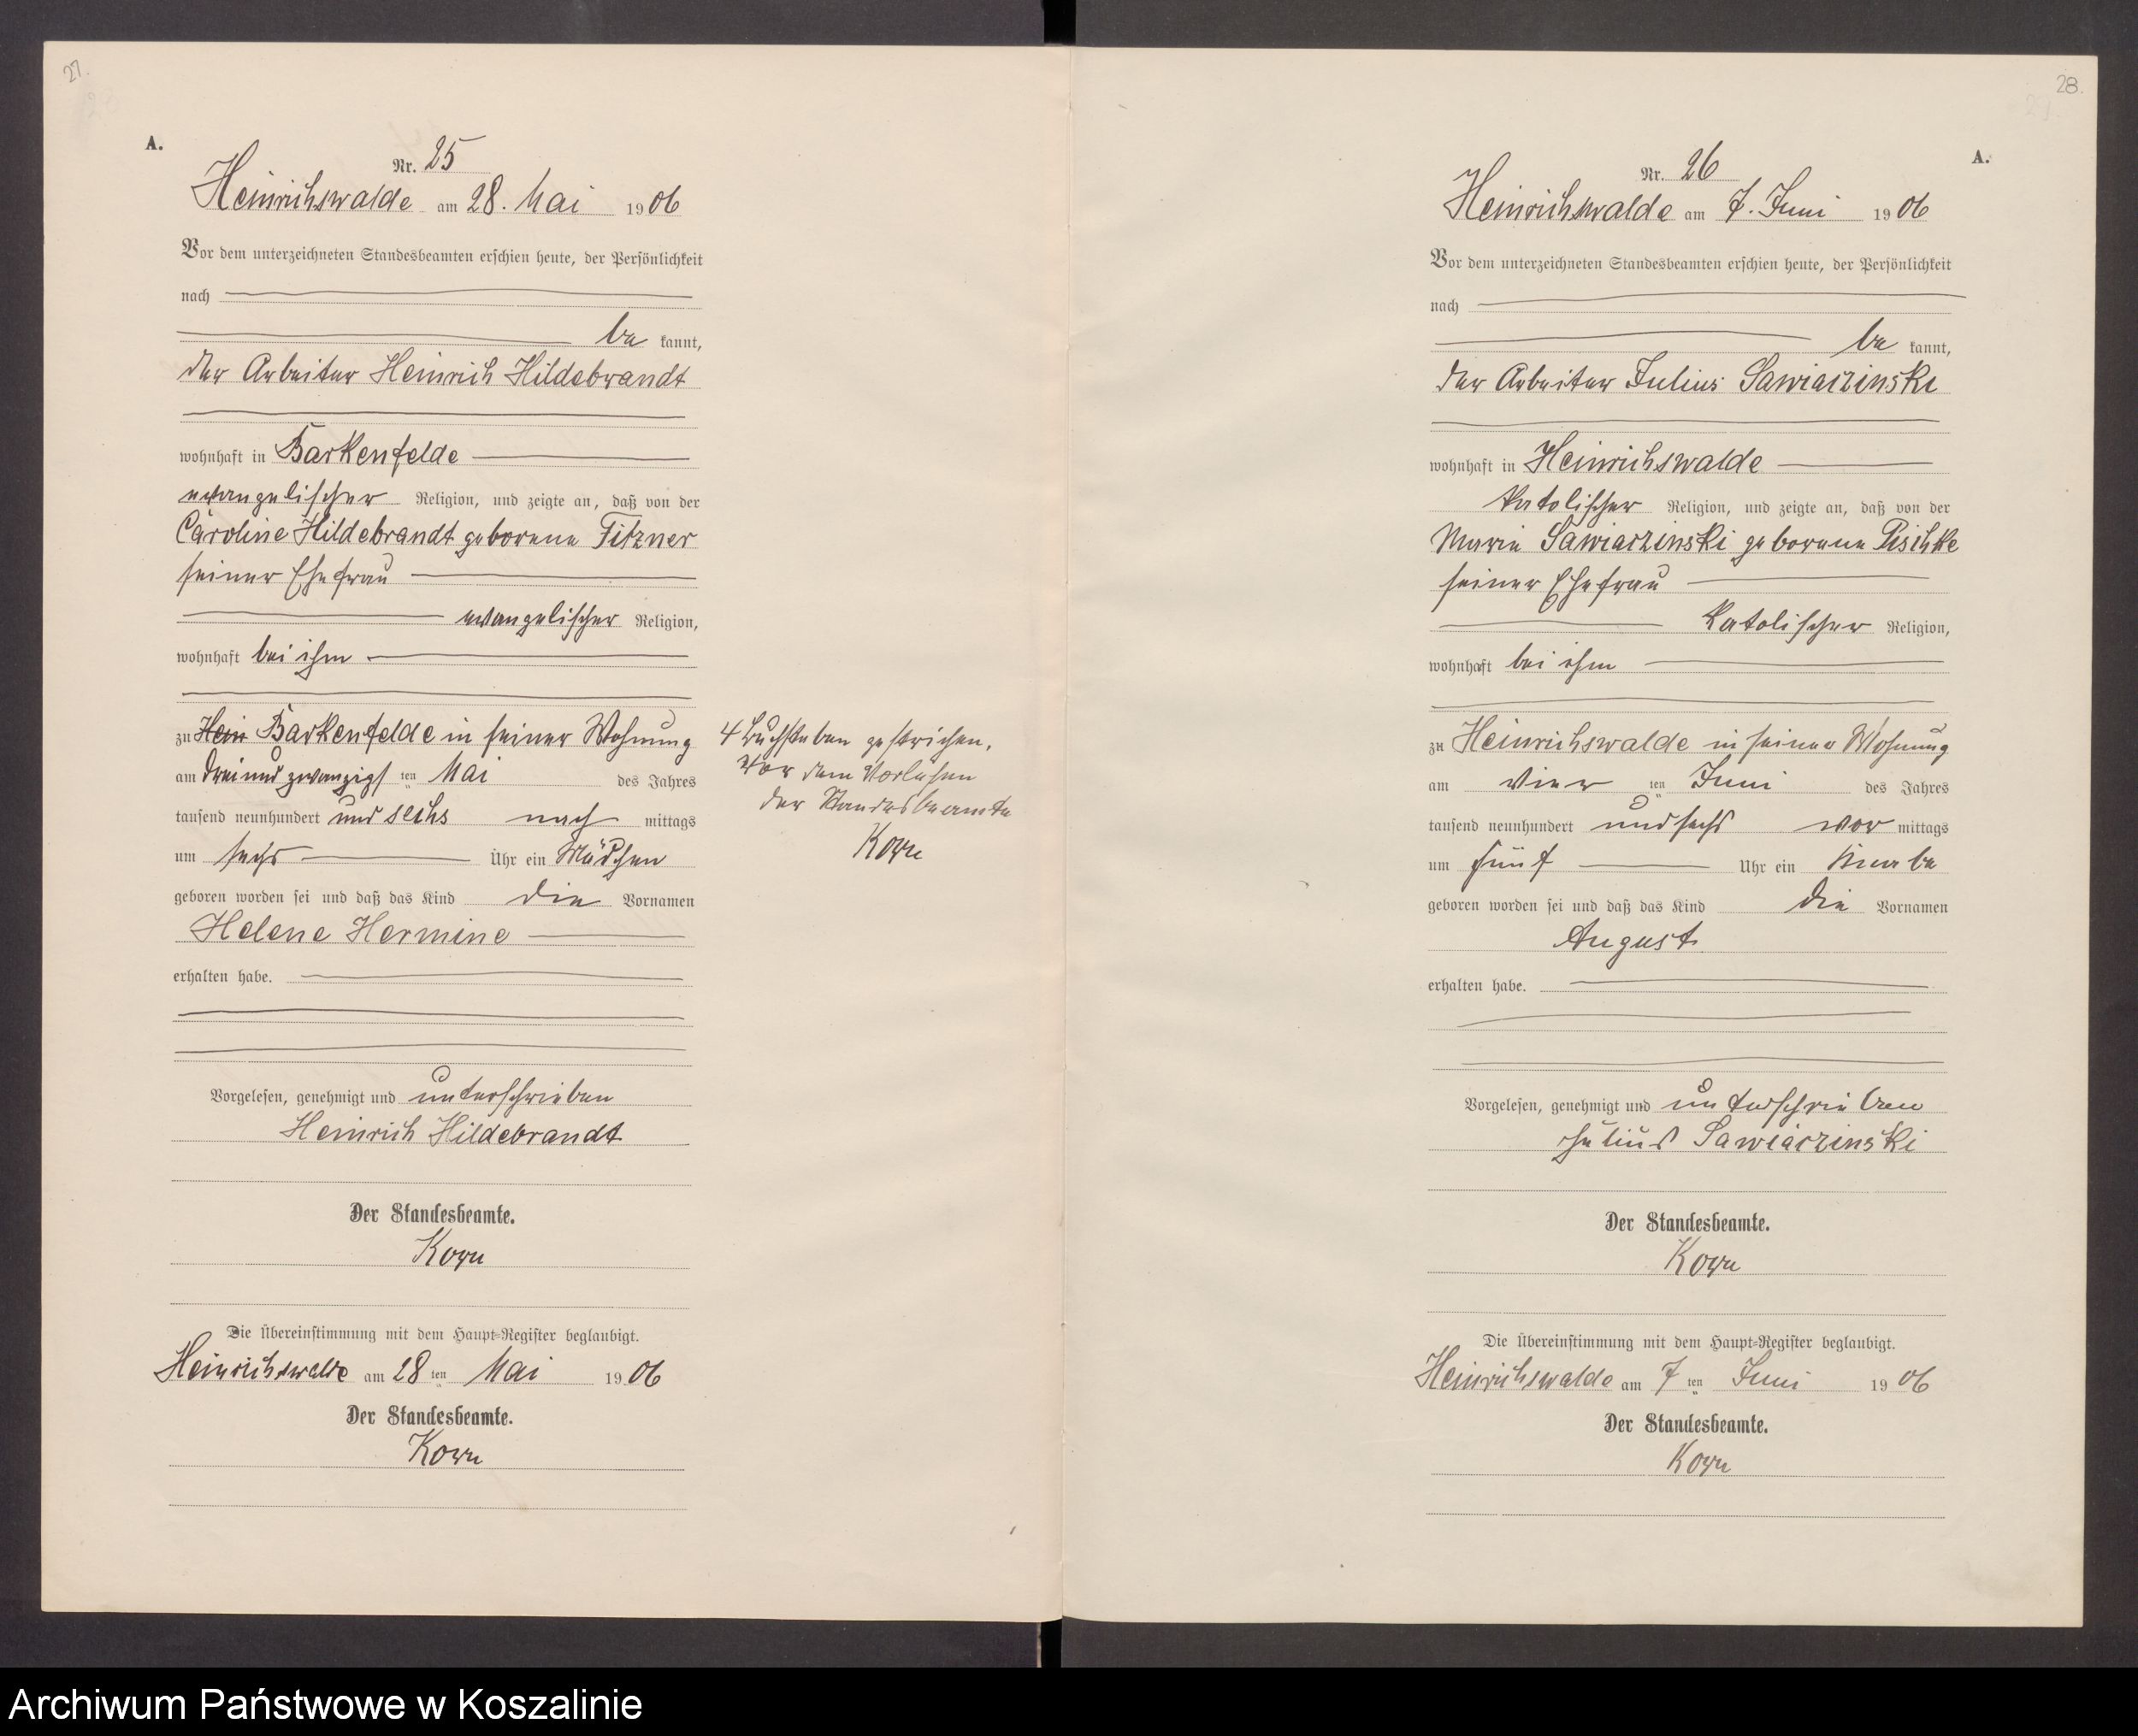 27.
A.
Nr. 25
Heinrichswalde am 28. Mai 1906
Vor dem unterzeichneten Standesbeamten erschien heute, der Persönlichkeit
nach
be kannt,
der Arbeiter Heinrich Hildebrandt
wohnhaft in Barkenfelde
evangelischer Religion, und zeigte an, daß von der
Caroline Hildebrandt geborene Titzner
seiner Ehefrau
evangelischer Religion,
wohnhaft bei ihm
zu Hein Barkenfelde in seiner Wohnung
am dreiundzwanzigs ten Mai des Jahres
tausend neunhundert und sechs nach mittags
um sechs Uhr ein Mädchen
geboren worden sei und daß das Kind die Vornamen
Helene Hermine
erhalten habe.
Vorgelesen, genehmigt und unterschrieben
Heinrich Hildebrandt
Der Standesbeamte.
Die Übereinstimmung mit dem Haupt-Register beglaubigt.
Heinrichswalde am 28 ten Mai 1906
Der Standesbeamte.
4 Buchstaben gestrichen.
Vor dem Vorlesen
der Standesbeamte
28.
A.
Nr. 26
Heinrichswalde am 7. Juni 1906
Vor dem unterzeichneten Standesbeamten erschien heute, der Persönlichkeit
nach
be kannt,
der Arbeiter Julius Sawiaczinski
wohnhaft in Heinrichswalde
katolischer Religion, und zeigte an, daß von der
Marie Sawiaczinski geborene Pischke
seiner Ehefrau
katolischer Religion,
wohnhaft bei ihm
zu Heinrichswalde in seiner Wohnung
am vier ten Juni des Jahres
tausend neunhundert und sechs vor mittags
um fünf Uhr ein Knabe
geboren worden sei und daß das Kind die Vornamen
August
erhalten habe.
Vorgelesen, genehmigt und unterschrieben
Julius Sawiaczinski
Der Standesbeamte.
Die Übereinstimmung mit dem Haupt-Register beglaubigt.
Heinrichswalde am 7 ten Juni 1906
Der Standesbeamte.
Archiwum Państwowe w Koszalinie